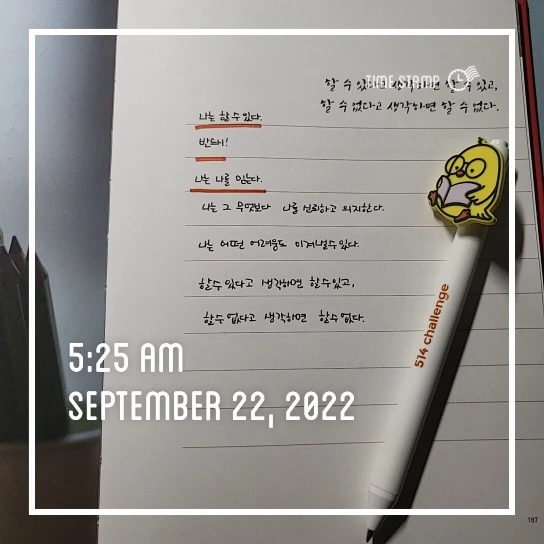 TIME STAMP
할 수 있다고 생각하면 할 수 있고,
할 수 없다고 생각하면 할 수 없다.
나는 할 수 있다.
반드시!
나는 나를 믿는다.
나는 그 무엇보다 나를 신뢰하고 의지한다.
나는 어떤 어려움도 이겨낼 수 있다.
할 수 있다고 생각하면 할 수 있고,
할 수 없다고 생각하면 할 수 없다.
514 challenge
5:25 AM
SEPTEMBER 22, 2022
187